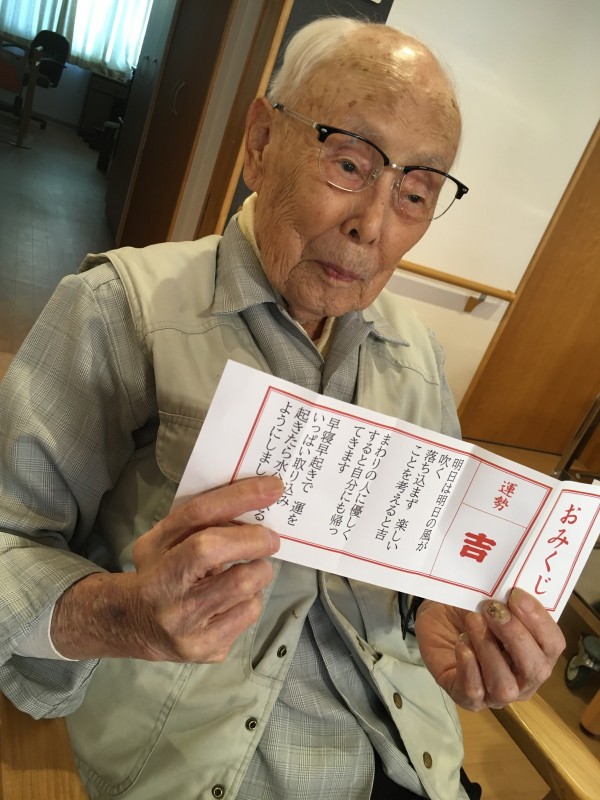 おみくじ
運勢
吉
明日は明日の風が
吹く
落ち込まず 楽しい
ことを考えると吉
まわりの人に優しく
すると自分にも帰っ
てきます
早寝早起きで 運を
いっぱい取り込み
起きたら水
ようにしまし
る